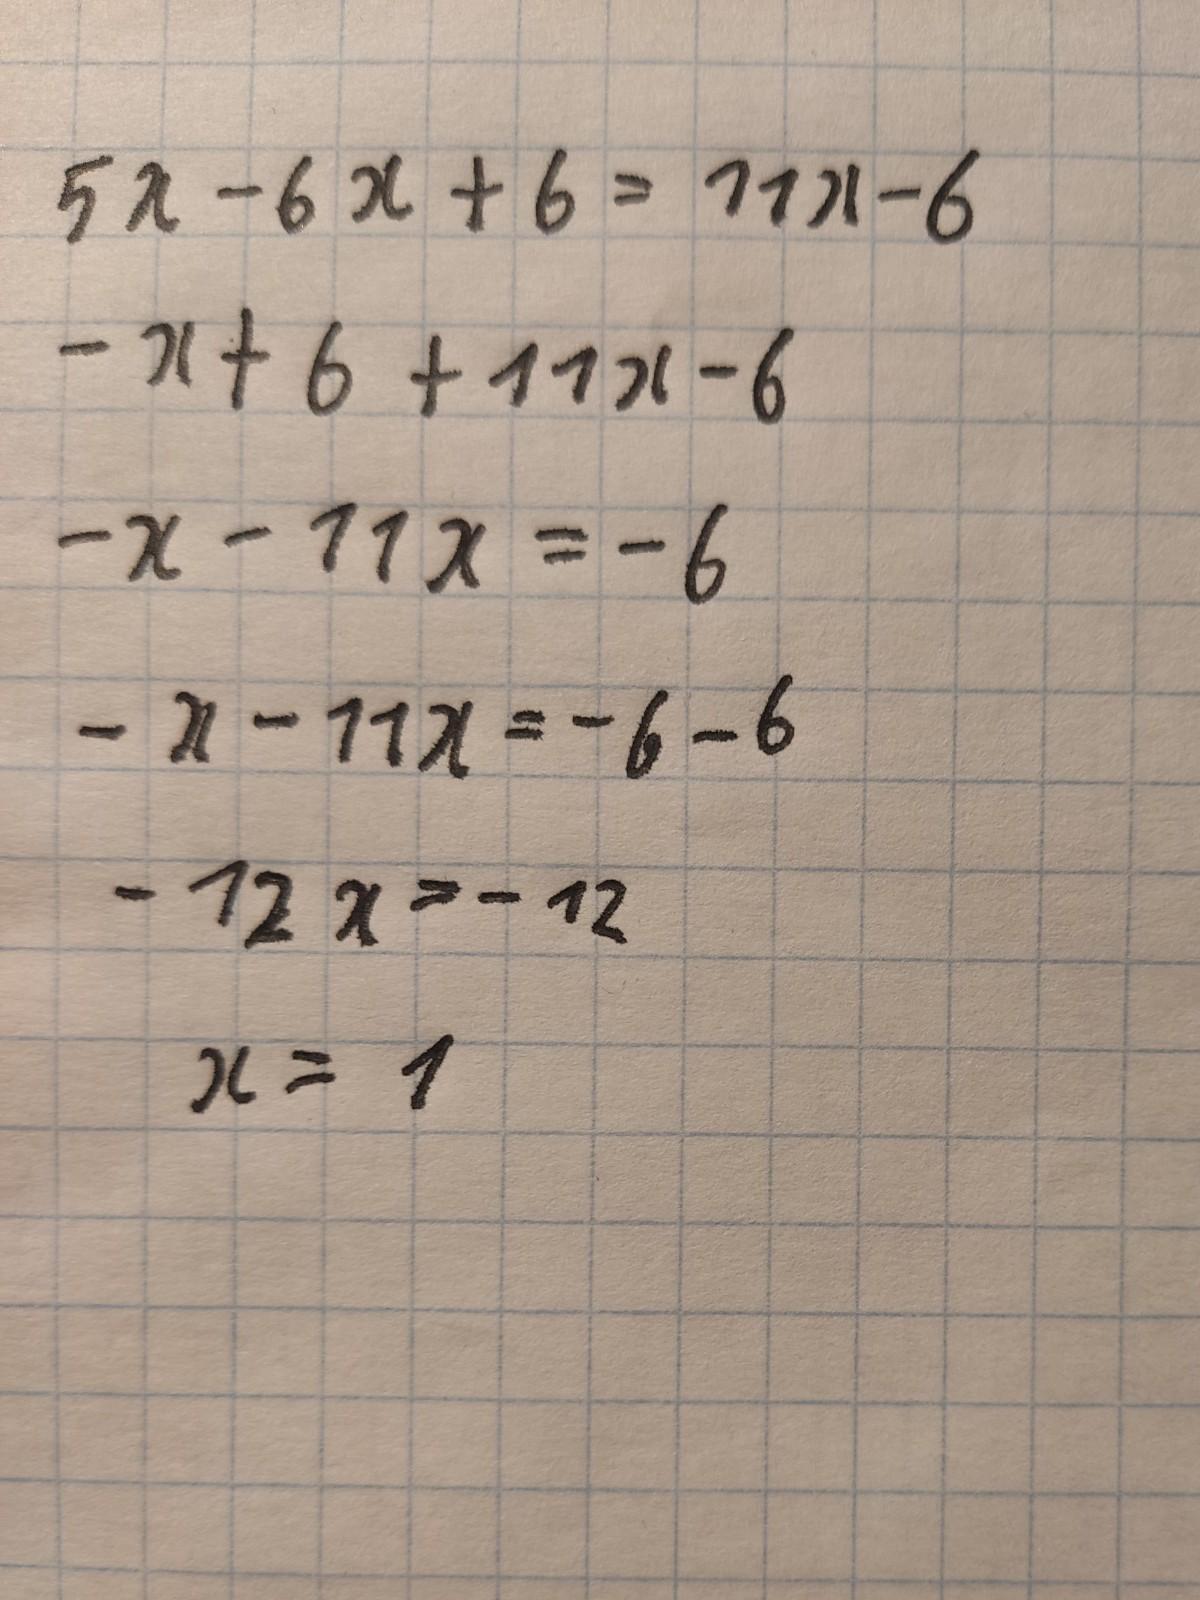 5x - 6x + 6 = 11x - 6
- x + 6 + 11x - 6
- x - 11x = - 6
- x - 11x = - 6 - 6
- 12x = - 12
x = 1